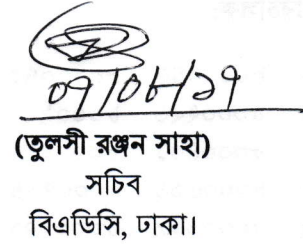 ০৭/০৮/১৭
(তুলসী রঞ্জন সাহা)
সচিব
বিএডিসি, ঢাকা।